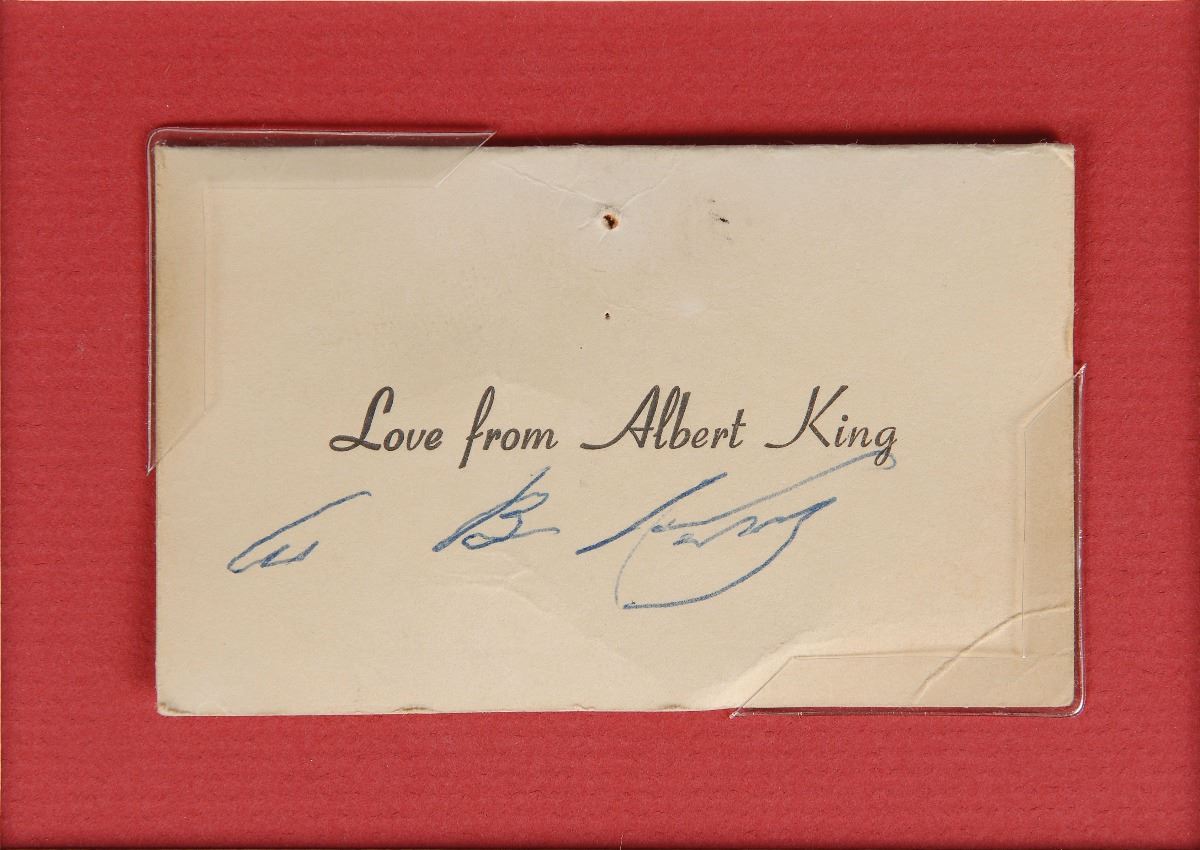 Love from Albert King
B King